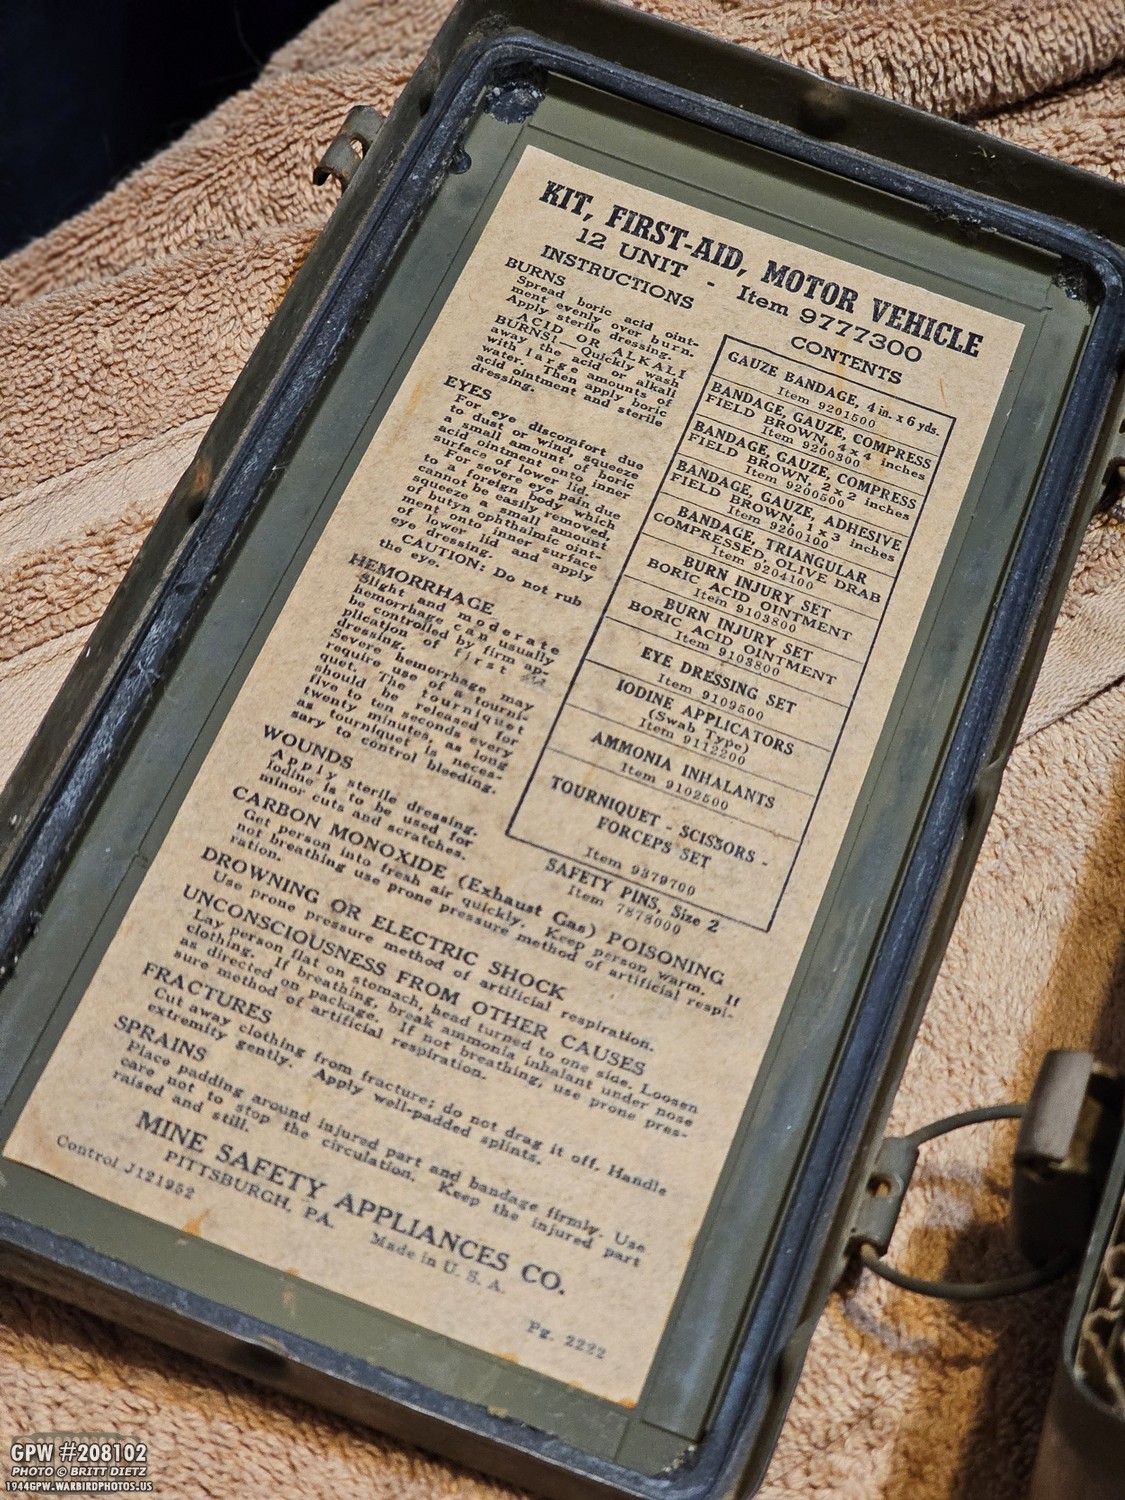 KIT, FIRST-AID, MOTOR VEHICLE
12 UNIT - Item 9777300
INSTRUCTIONS
BURNS
Spread boric acid oint-
ment evenly over burn.
Apply sterile dressing.
ACID OR ALKALI
BURNS!—Quickly wash
away the acid or alkali
with large amounts of
water. Then apply boric
acid ointment and sterile
dressing.
EYES
For eye discomfort due
to dust or wind, squeeze
a small amount of boric
acid ointment onto inner
surface of lower lid.
For severe eye pain due
to a foreign body which
cannot be easily removed,
squeeze a small amount
of butyn ophthalmic oint-
ment onto inner surface
of lower lid and apply
eye dressing.
CAUTION: Do not rub
the eye.
HEMORRHAGE
Slight and moderate
hemorrhage can usually
be controlled by firm ap-
plication of first
dressing.
Severe hemorrhage may
require use of a tourni-
quet. The tourniquet
should be released for
five to ten seconds every
twenty minutes, as long
as tourniquet is neces-
sary to control bleeding.
WOUNDS
Apply sterile dressing.
Iodine is to be used for
minor cuts and scratches.
CONTENTS
GAUZE BANDAGE, 4 in. x 6 yds.
Item 9201500
BANDAGE, GAUZE, COMPRESS
FIELD BROWN, 4 x 4 inches
Item 9200300
BANDAGE, GAUZE, COMPRESS
FIELD BROWN, 2 x 2 inches
Item 9200500
BANDAGE, GAUZE, ADHESIVE
FIELD BROWN, 1 x 3 inches
Item 9200100
BANDAGE, TRIANGULAR
COMPRESSED, OLIVE DRAB
Item 9204100
BURN INJURY SET
BORIC ACID OINTMENT
Item 9103800
BURN INJURY SET
BORIC ACID OINTMENT
Item 9103800
EYE DRESSING SET
Item 9109500
IODINE APPLICATORS
(Swab Type)
Item 9112200
AMMONIA INHALANTS
Item 9102500
TOURNIQUET - SCISSORS -
FORCEPS SET
Item 9379700
SAFETY PINS, Size 2
Item 7878000
CARBON MONOXIDE (Exhaust Gas) POISONING
Get person into fresh air quickly. Keep person warm. If
not breathing use prone pressure method of artificial respi-
ration.
DROWNING OR ELECTRIC SHOCK
Use prone pressure method of artificial respiration.
UNCONSCIOUSNESS FROM OTHER CAUSES
Lay person flat on stomach, head turned to one side. Loosen
clothing. If breathing, break ammonia inhalant under nose
as directed on package. If not breathing, use prone pres-
sure method of artificial respiration.
FRACTURES
Cut away clothing from fracture; do not drag it off. Handle
extremity gently. Apply well-padded splints.
SPRAINS
Place padding around injured part and bandage firmly. Use
care not to stop the circulation. Keep the injured part
raised and still.
MINE SAFETY APPLIANCES CO.
PITTSBURGH, PA.
Made in U. S. A.
Control J121952
Pg. 2222
GPW #208102
PHOTO © BRITT DIETZ
1944GPW.WARBIRDPHOTOS.US